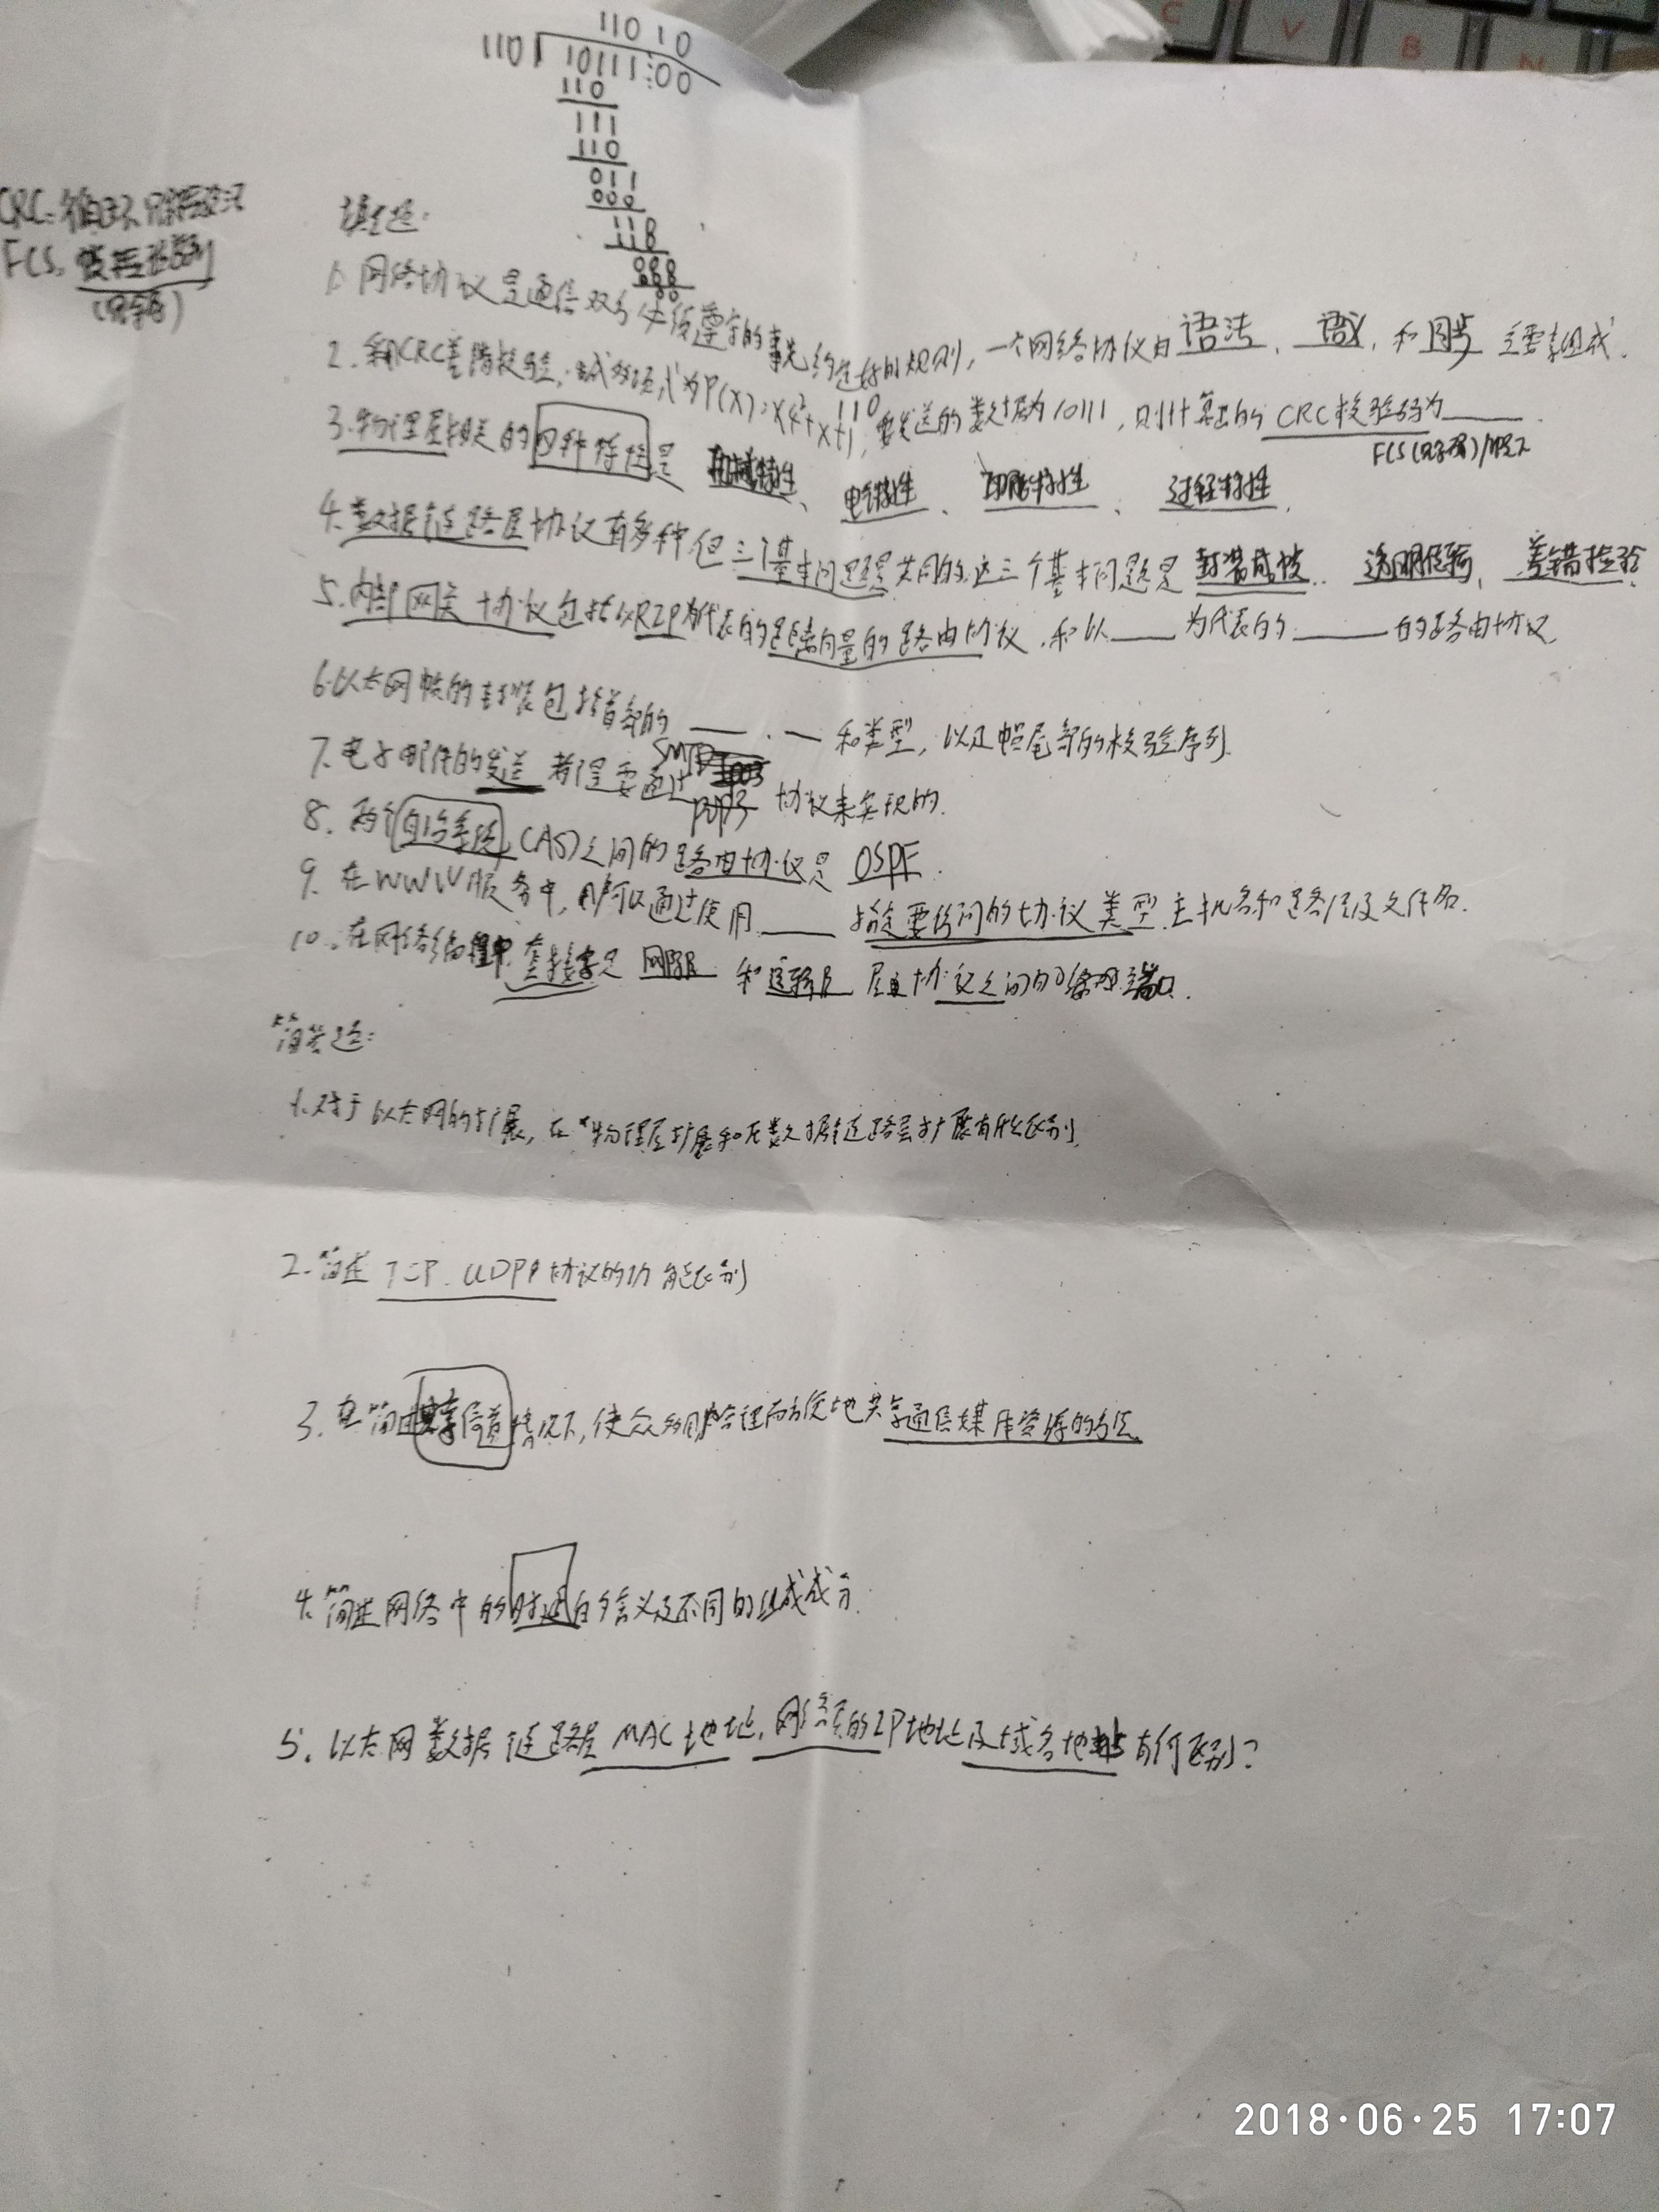 11010
110 10111 00
110
111
110
011
000
110
000
00
CRC:循环冗余
FCS:帧检验序列
(冗余码)
填空题:
1.网络协议是通信双方必须遵守的事先约定好的规则,一个网络协议由语法、语义,和同步 三要素组成.
2.采用CRC差错校验,生成多项式为P(X)=X4+X+1,要发送的数据为10111,则计算出的CRC校验码为____.
110
FCS(冗余码)/
3.物理层相关的四种特性是 机械特性、电气特性、功能特性、过程特性.
4.数据链路层协议有多种但三个基本问题是共同的.这三个基本问题是 封装成帧.透明传输、差错检验.
5.内部网关协议包括以RIP为代表的距离向量的路由协议.和以____为代表的____的路由协议.
6.以太网帧的封装包括首部的____.__和类型,以及帧尾部的校验序列.
7.电子邮件的发送 都是要通过 SMTP POP3 协议来实现的.
8.两个自治系统(AS)之间的路由协议是 OSPF.
9.在WWW服务中,用户可以通过使用____指定要访问的协议类型.主机名和路径及文件名.
10.在网络编程中,套接字是 网际层 和运输层 层 协议之间的 端口.
简答题:
1.对于以太网的扩展,在物理层扩展和在数据链路层扩展有什么区别.
2.简述TCP.UDP 协议的功能区别
3.在简述共享信道情况下,使众多用户合理而方便地共享通信媒体资源的方法.
4.简述网络中的时延的含义及不同的组成成分.
5.以太网数据链路层MAC地址.网络层的IP地址及域名地址有何区别?
2018·06·25 17:07